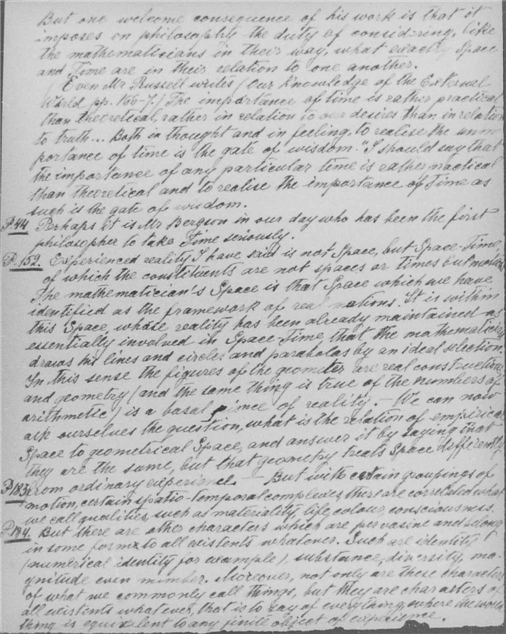 But one welcome consequence of his work is that it
imposes on philosophy the duty of considering, like
the mathematicians in their way, what exactly Space
and Time are in their relation to one another.
Even Mr Russell writes (Our Knowledge of the External
World pp. 166-7.) The importance of time is rather practical
than theoretical, rather in relation to our desires than in relation
to truth... Both in thought and in feeling, to realise the unim
portance of time is the gate of wisdom. I should say that
the importance of any particular time is rather practical
than theoretical and to realise the importance of Time as
such is the gate of wisdom.
P.44 Perhaps it is Mr Bergson in our day who has been the first
philosopher to take Time seriously.
P.152. Experienced reality I have said is not Space, but Space-Time,
of which the constituents are not spaces or times but motions
The mathematician's Space is that Space which we have
identified as the framework of real motions. It is within
this Space, whose reality has been already maintained as
essentially involved in Space Time that the mathematician
draws his lines and circles and parabolas by an ideal selection.
In this sense the figures of the geometer are real constructions
and geometry (and the same thing is true of the numbers of
arithmetic) is a basal science of reality. - We can now
ask ourselves the question, what is the relation of empirical
Space to geometrical Space, and answer it by saying that
they are the same, but that geometry treats Space differently
from ordinary experience. - But with certain groupings of
P183. motion, certain spatio-temporal complexes there are correlated what
we call qualities such as materiality, life, colour, consciousness.
P.184. But there are other characters which are pervasive and belong
in some form to all existents whatever. Such are identity
(numerical identity for example), substance, diversity, ma-
gnitude even number. Moreover, not only are these characters
of what we commonly call things, but they are characters of
all existents whatever, that is to say of everything, where the word
thing is equivalent to any finite object of experience.